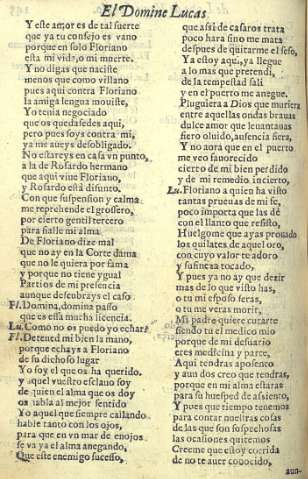 El Domine Lucas
Y este amor es de tal suerte
que ya tu consejo es vano
porque en solo Floriano
esta mi vida, o mi muerte.
Y no digas que naciste
menos que como villano
pues aqui contra Floriano
la amiga lengua mouiste,
Yo tenia negociado
que os quedasedes aqui,
pero pues soys contra mi,
ya me aueys desobligado.
No estareys en casa vn punto,
a la de Rosardo hermano
que aqui viue Floriano,
y Rosardo està difunto.
Con que suspension y calma
me reprehende el grossero,
por cierto gentil tercero
para fialle mi alma.
De Floriano dize mal
que no ay en la Corte dama
que no le quiera por fama
y porque no tiene ygual
Partios de mi presencia
aunque descubrays el caso
Fl. Domina, domine passo
que es essa mucha licencia.
Lu. Como no os puedo yo echar?
Fl. Detened mi bien la mano,
porque echays a Floriano
de su dichoso lugar
Yo soy el que os ha querido.
y aquel vuestro esclauo soy
de quien el alma que os doy
os habla al mejor sentido
Yo aquel que siempre callando
hable tanto con los ojos,
para que en vn mar de enojos
se va ya el alma anegando,
Que este enemigo sucesso,
que assi de casaros trata
poco hara sino me mata
despues de quitarme el seso,
Ya estoy aqui, ya llegue
a lo mas que pretendi,
de la tempestad sali
y en el puerto me anegue.
Pluguiera a Dios que muriera
entre aquellas ondas brauas
dulce amor que leuantauas
fiero oluido, ausencia fiera,
Y no aora que en el puerto
me veo fauorecido
cierto de mi bien perdido
y de mi remedio incierto,
Lu. Floriano a quien ha visto
tantas prueuas de mi fe,
poco importa que las dè
con el llanto que resisto,
Huelgome que ayas prouado
los quilates de aquel oro,
con cuyo valor te adoro
y su fineza tocado,
Y pues ya no ay que dezir
mas de lo que visto has,
o tu mi esposo seras,
o tu me veras morir,
Mi padre quiere curarte
siendo tu el medico mio
porque de mi desuario
eres medicina y parte,
Aqui tendras aposento
y aun dos creo que tendras,
porque en mi alma estaras
para su huesped de assiento,
Y pues que tiempo tenemos
para contar nuestras cosas
de las que son sospechosas
las ocasiones quitemos
Creeme que estoy corrida
de no te auer conocido,
aun-